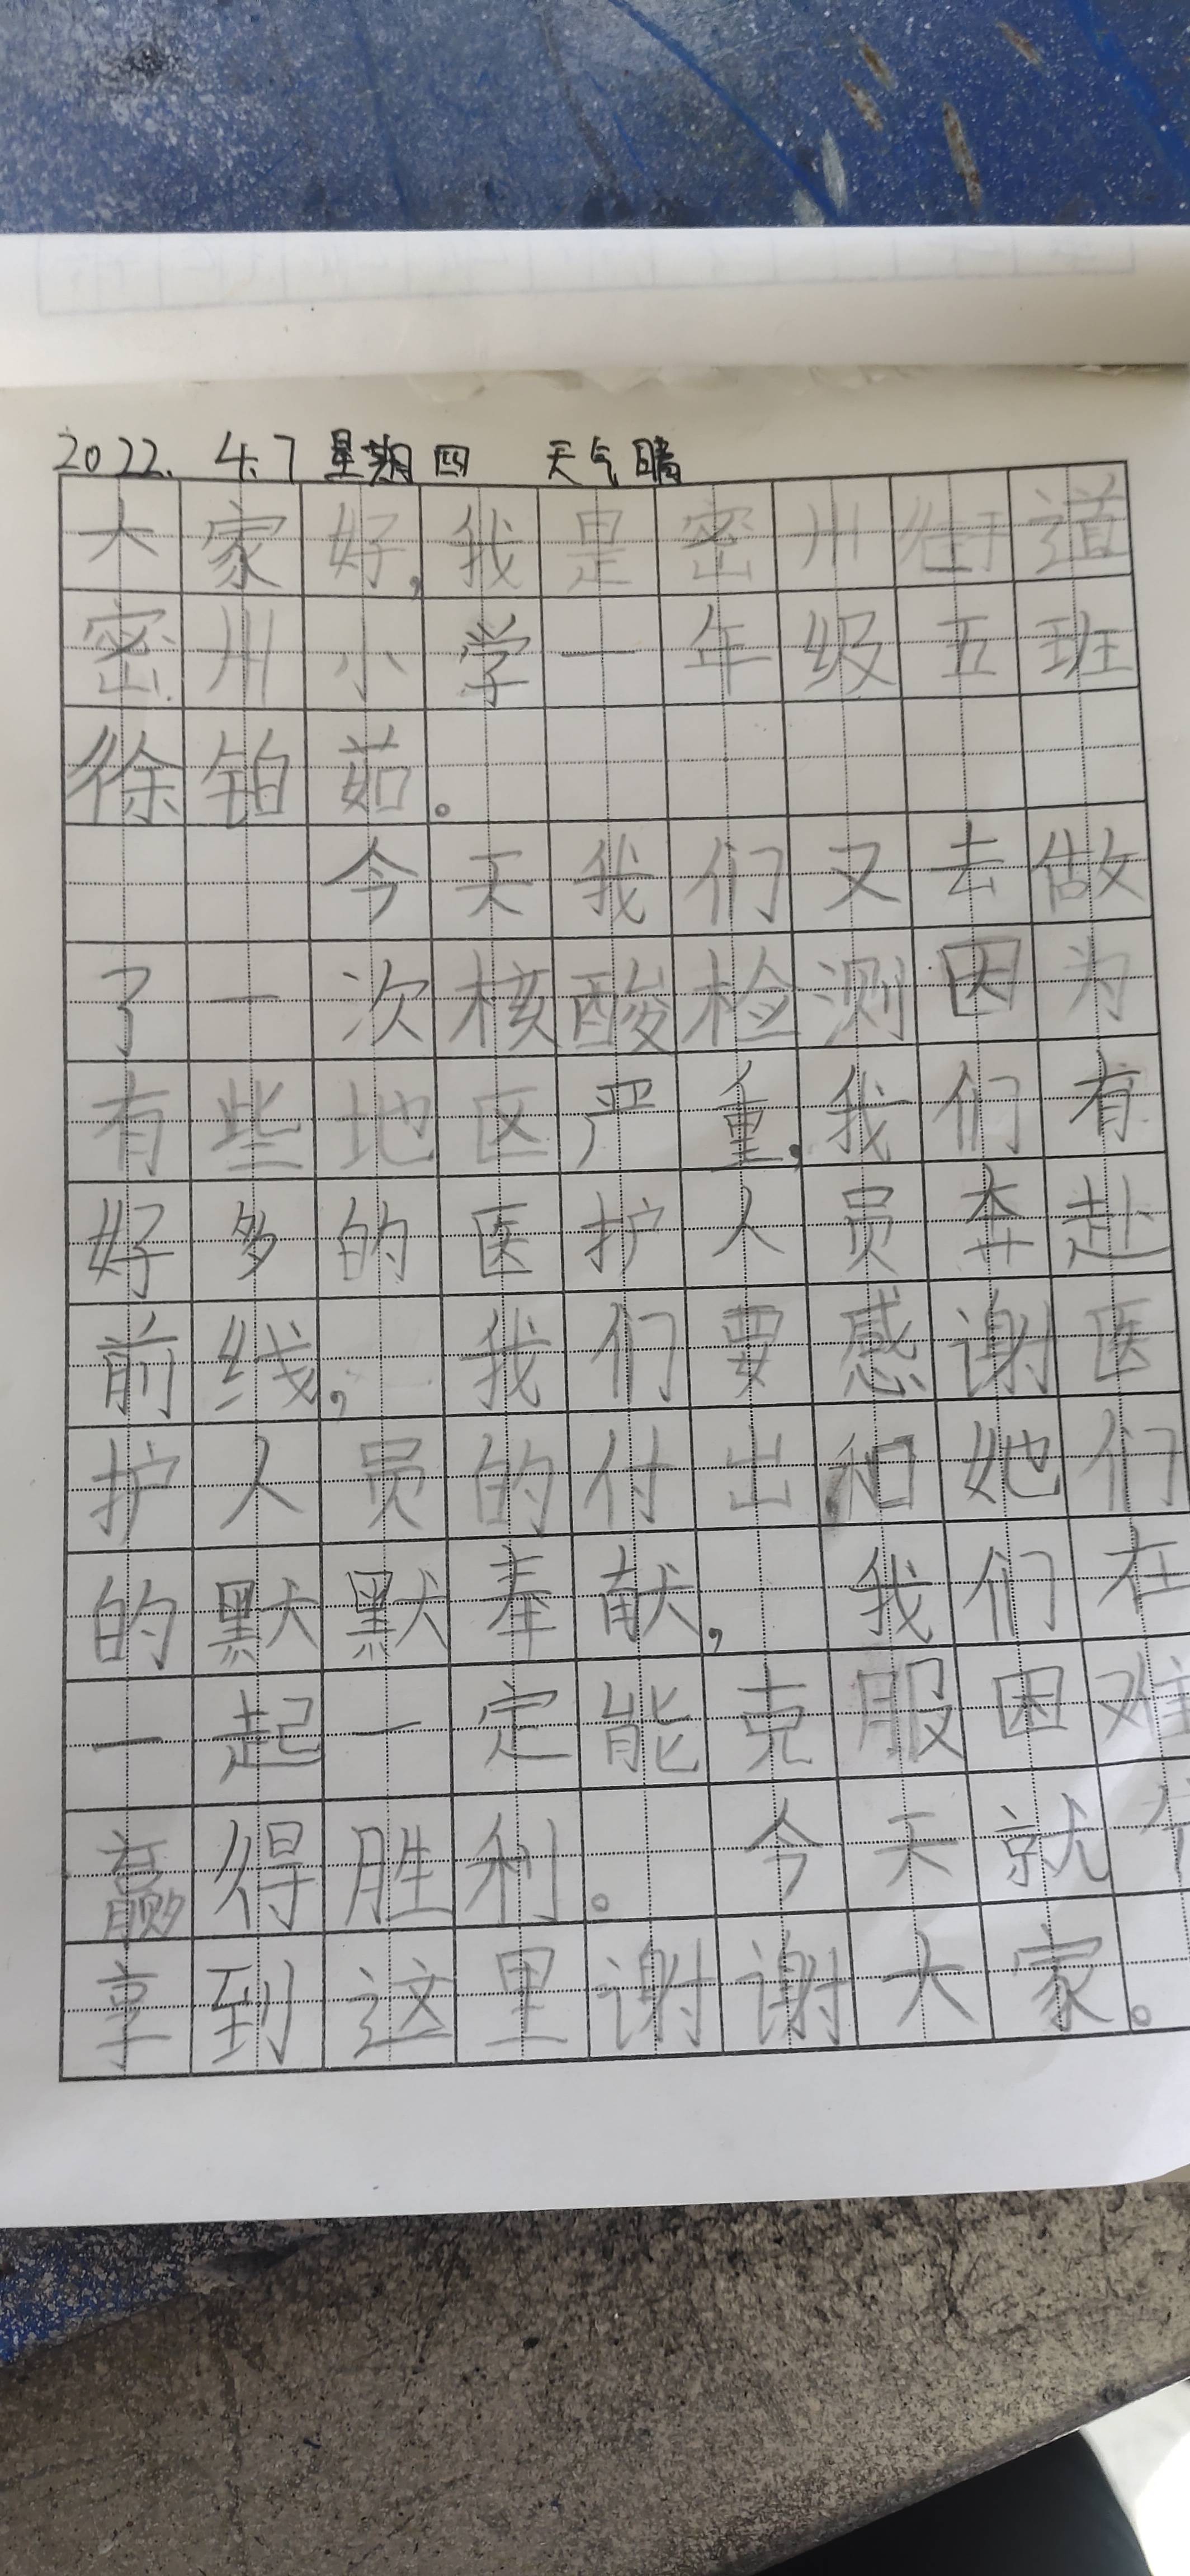 2022. 4.7 星期四 天气晴
大家好,我是密州街道
密州小学一年级五班
徐铂茹。
今天我们又去做
了一次核酸检测因为
有些地区严重,我们有
好多的医护人员奔赴
前线, 我们要感谢医
护人员的付出和她们
的默默奉献, 我们在
一起一定能克服困难
赢得胜利。 今天就
享到这里谢谢大家。